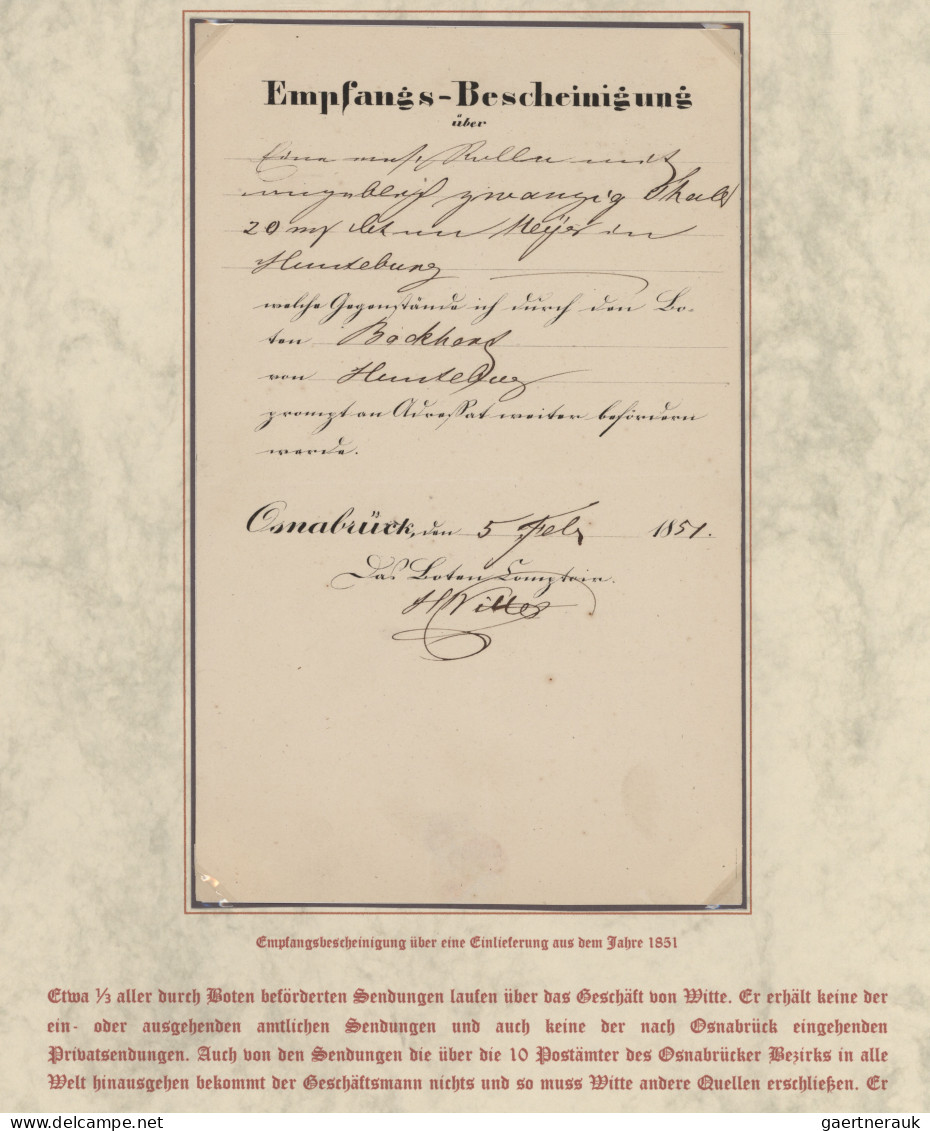 Empfangs-Bescheinigung
über
Eine Rolle mit
angeblich zwanzig Thaler
20 Meyer in
Hunteburg
welche Gegenstände ich durch den Bo-
ten Böckhorst
von Hunteburg
prompt an Adressat weiter befördern
werde.
Osnabrück, den 5 Feb 1851.
Das Boten Comptoir.
H Witte
Empfangsbescheinigung über eine Einlieferung aus dem Jahre 1851
Etwa 1/3 aller durch Boten beförderten Sendungen laufen über das Geschäft von Witte. Er erhält keine der
ein- oder ausgehenden amtlichen Sendungen und auch keine der nach Osnabrück eingehenden
Privatsendungen. Auch von den Sendungen die über die 10 Postämter des Osnabrücker Bezirks in alle
Welt hinausgehen bekommt der Geschäftsmann nichts und so muss Witte andere Quellen erschließen. Er
www.delcampe.net
gaertnerauk